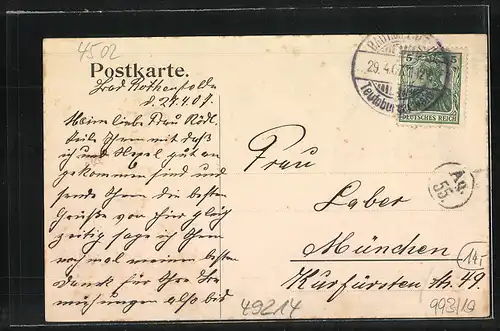 4502
Postkarte.
Bad Rothenfelde
d. 29.4.07.
Meine liebe Frau Rödl
teile Ihnen mit daß
ich und gut an
gekommen sind und
sende Ihnen die besten
Grüße von hier gleich
zeitig sage ich Ihnen
noch mal meinen besten
Dank für Ihre Be
mühungen also bis
29.4.07
Teutoburger
5 5
DEUTSCHES REICH
Frau
Laber
München
Kurfürsten str. 49.
Ag.
55.
14r
49214
993/19